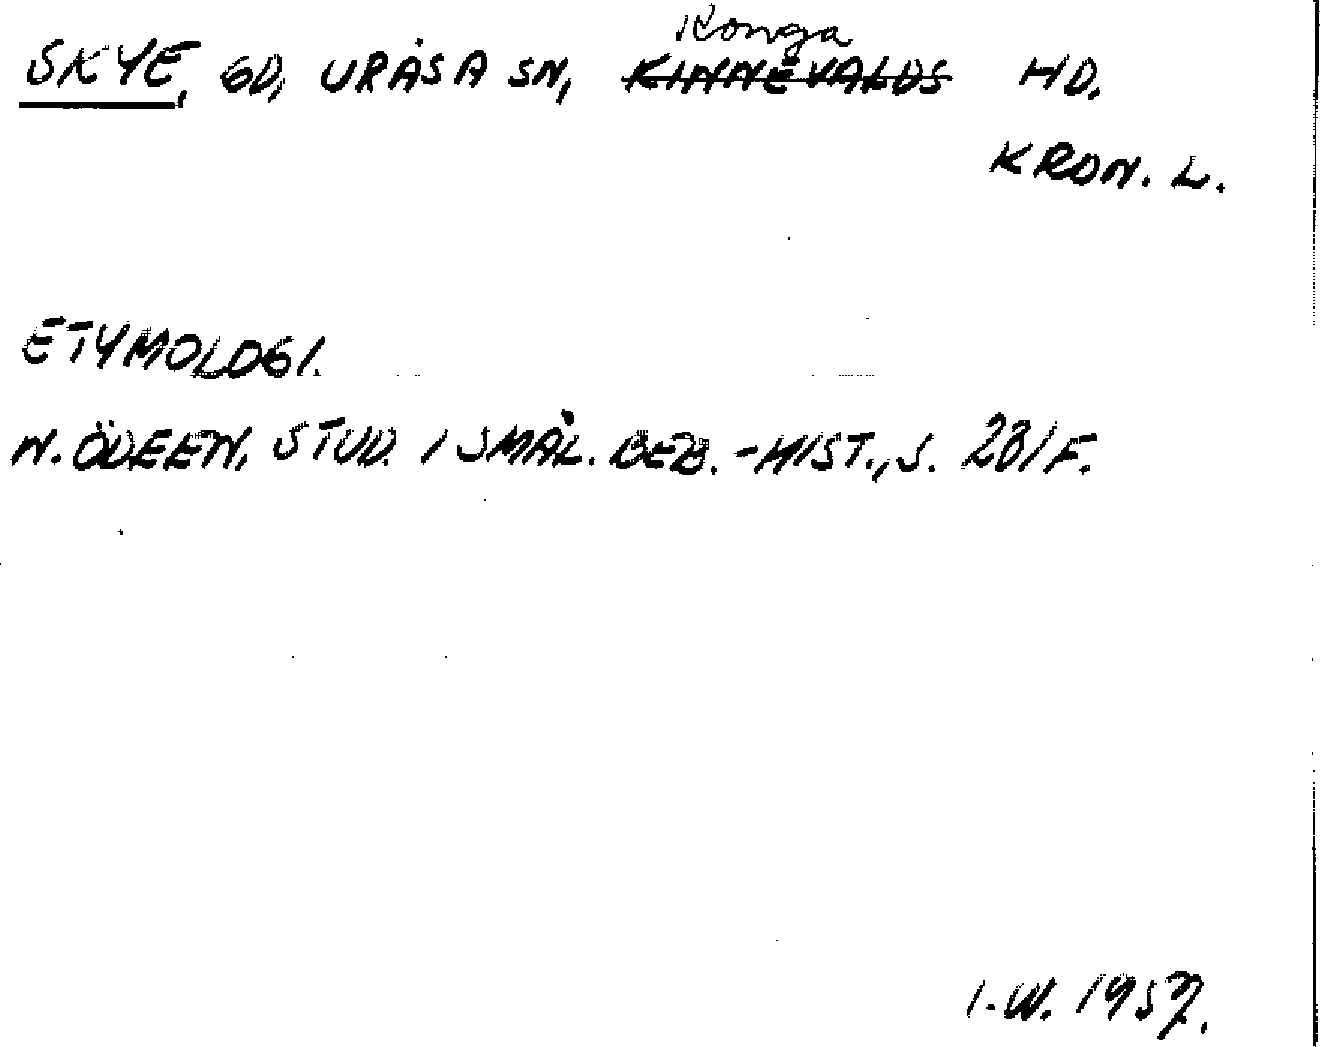 Konga
SKYE, GD, URÅSA SN, KINNEVALDS HD.
KRON. L.
ETYMOLOGI.
N. ÖDEEN, STUD. I SMÅL. BEB.-HIST., S. 281 F.
I-W. 1957.